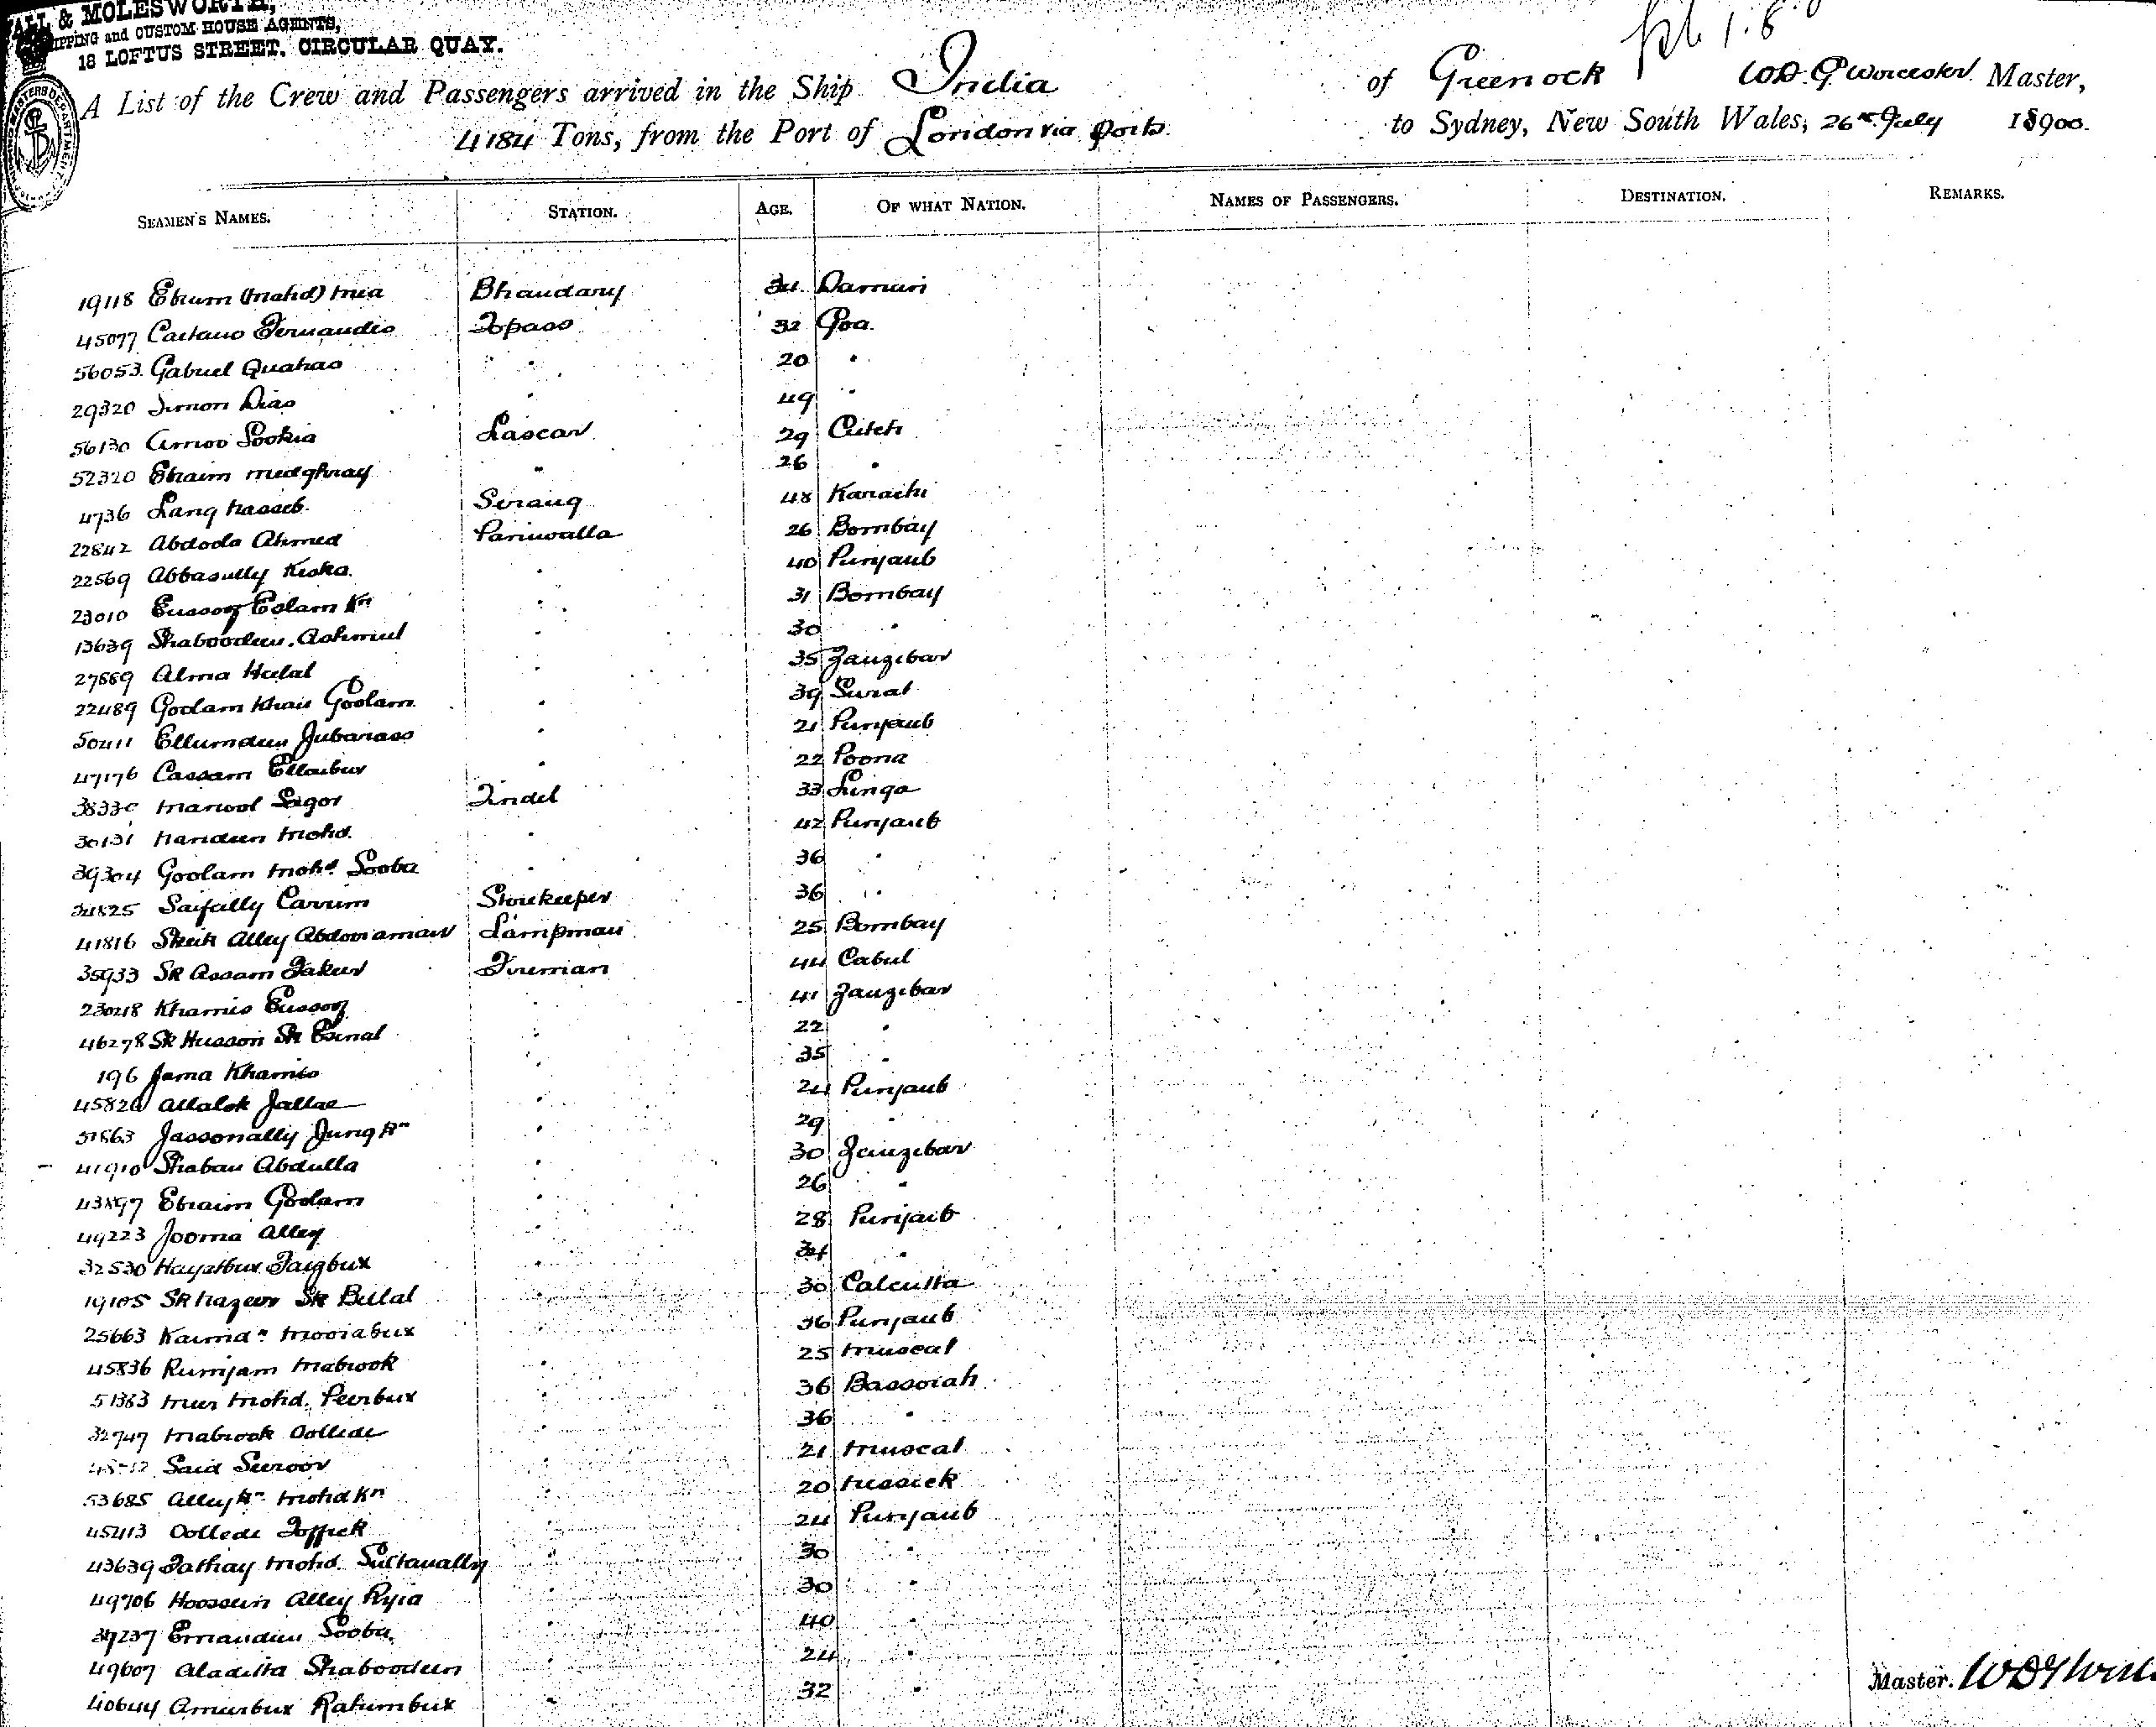 WALL & MOLESWORTH,
SHIPPING and CUSTOM HOUSE AGENTS,
18 LOFTUS STREET, CIRCULAR QUAY.
A List of the Crew and Passengers arrived in the Ship India of Greenock Worcester Master,
4184 Tons, from the Port of London via Ports to Sydney, New South Wales, 26th July 1900.
SEAMEN'S NAMES. STATION. AGE. OF WHAT NATION. NAMES OF PASSENGERS. DESTINATION. REMARKS.
19118 Ebrum (Mahd) Mea Bhandary 34 Damun
45077 Caetano Fernandes Topass 32 Goa.
56053 Gabriel Quahao " 20 "
29320 Simon Dias " 49 "
56130 Amoo Sookia Lascar 29 Cutch
52320 Ebraim " 26 "
4736 Serang 48 Karachi
22842 Abdoola Ahmed Paniwalla 26 Bombay
22569 Abbasully " 40 Punjaub
23010 Eussoof Eslam Kn " 31 Bombay
13639 Shaboodeen Achmul " 30 "
27889 Alma Helal " 35 Zanzibar
22489 Goolam Khais Goolam " 39 Surat
50411 Ellumdeen Jubarass " 21 Punjaub
47176 Cassam Ellaibux " 22 Poona
38330 Tindel 33 Linga
30131 Mohd. " 42 Punjaub
39304 Goolam Mohd Sooba " 36 "
34825 Saifally Carrim Storekeeper 36 "
41816 Sheik Alley Abdooraman Lampman 25 Bombay
35933 Sk Assam Fakeer Fireman 44 Cabul
23048 Khamis Eussoof " 41 Zanzibar
46278 Sk Husson Sk Esmal " 22 "
196 Jama Khamis " 35 "
45826 Allalok Jallae " 24 Punjaub
51863 Jassonally Jung Kn " 29 "
41910 Shaban Abdulla " 30 Zanzibar
43897 Ebraim Goolam " 26 "
49223 Jooma Alley " 28 Punjaub
32530 Hayatbux Faizbux " 34 "
19105 Sk Nazeer Sk Bellal " 30 Calcutta
25663 Moolabux " 36 Punjaub
45836 Rumjam Mabrook " 25 Muscat
51363 Meer Mohd. Peerbux " 36 Bassorah
32747 Mabrook " 36 "
Said Suroor " 21 Muscat
53685 Alley Kn Mohd Kn " 20
45413 Toffick " 24 Punjaub
43639 Fathay Mohd. Sultanally " 30 "
49706 Hoossein Alley " 30 "
39237 Emamdeen Sooba " 40 "
49607 Aladitta Shaboodeen " 24 "
40644 Amurbux Rahimbux " 32 "
Master.